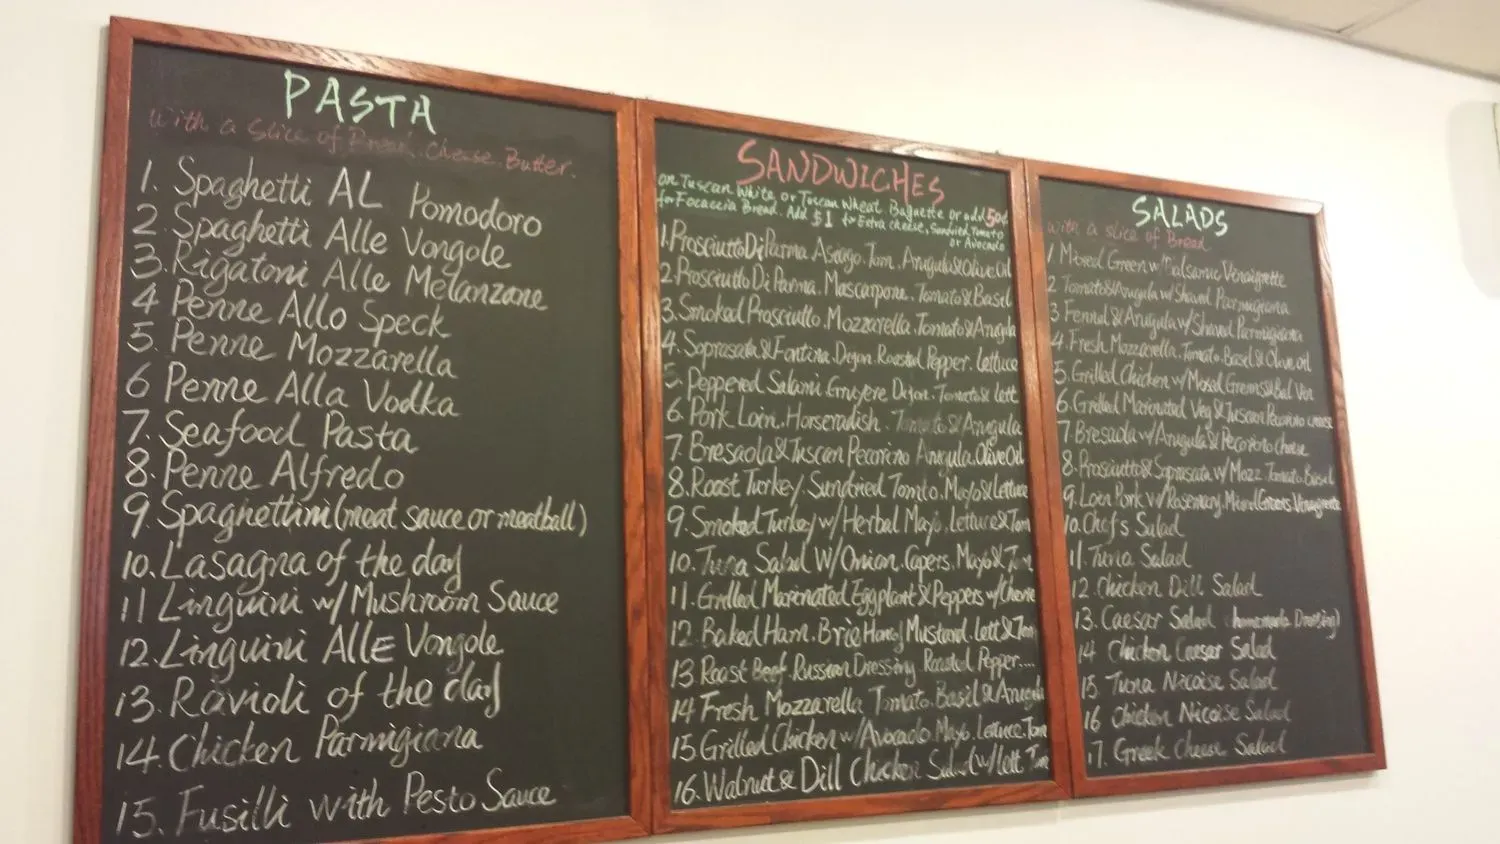 PASTA
With a slice of Bread. Cheese. Butter.
1. Spaghetti AL Pomodoro
2. Spaghetti Alle Vongole
3. Rigatoni Alle Melanzane
4 Penne Allo Speck
5. Penne Mozzarella
6 Penne Alla Vodka
7. Seafood Pasta
8. Penne Alfredo
9. Spaghettini (meat sauce or meatball)
10. Lasagna of the day
11 Linguini w/ Mushroom Sauce
12. Linguini ALLE Vongole
13. Ravioli of the day
14. Chicken Parmigiana
15. Fusilli with Pesto Sauce
SANDWICHES
on Tuscan White or Tuscan Wheat Baguette or add 50¢
for Focaccia Bread. Add $1 for Extra cheese, Sundried Tomato
or Avocado
1. Prosciutto Di Parma Asiago. Tom. Arugula & Olive Oil
2. Prosciutto Di Parma. Mascarpone. Tomato & Basil
3. Smoked Prosciutto. Mozzarella. Tomato & Arugula
4. Soprasata & Fontina. Dijon. Roasted Pepper. Lettuce
5. Peppered Salami. Gruyere Dijon. Tomato & lett
6. Pork Loin. Horseradish. Tomato & Arugula
7. Bresaola & Tuscan Pecorino Arugula. Olive Oil
8. Roast Turkey. Sundried Tomto. Mayo & Lettuce
9. Smoked Turkey w/ Herbal Mayo. Lettuce & Tom
10. Tuna Salad W/ Onion. Capers. Mayo & Tom
11. Grilled Marinated Eggplant & Peppers w/
12 Baked Ham. Brie Honey Mustard. Lett & Tom
13 Roast Beef. Russian Dressing. Roasted Pepper....
14 Fresh Mozzarella Tomato. Basil & Arugula
15 Grilled Chicken w/ Avocado Mayo. Lettuce. Tom
16. Walnut & Dill Chicken Salad w/ lett. Tom
SALADS
with a slice of Bread
1 Mixed Green w/ Balsamic Vinaigrette
2 Tomato & Arugula w/ Shaved Parmigiana
3 Fennel & Arugula w/ Shaved Parmigiana
4. Fresh Mozzarella. Tomato. Basil & Olive oil
5. Grilled Chicken w/ Mixed Greens & Bal Ven
6. Grilled Marinated Veg & Tuscan Pecorino cheese
7 Bresaola w/ Arugula & Pecorino Cheese
8. Prosciutto & Soprasata w/ Mozz. Tomato. Basil
9. Loin Pork w/ Rosemary. Mixed Greens. Vinaigrette
10. Chef's Salad
11. Tuna Salad
12 Chicken Dill Salad
13. Caesar Salad homemade Dressing)
14 Chicken Caesar Salad
15 Tuna Nicoise Salad
16 Chicken Nicoise Salad
17. Greek Cheese Salad